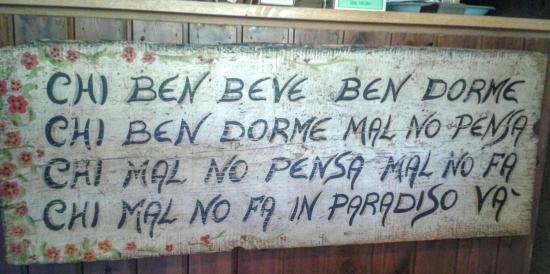 CHI BEN BEVE BEN DORME
CHI BEN DORME MAL NO PENSA
CHI MAL NO PENSA MAL NO FA
CHI MAL NO FA IN PARADISO VA'